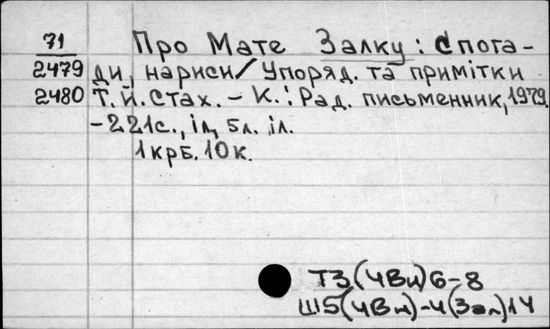 71 Про Мате Залку: спога-
2479 ди, нариси/Упоряд. та примітки
2480 Т.Й. Стах. - К.: Рад. письменник, 1979
-221с., іл, 5л. іл.
1 крб. 10к.
ТЗ(4Ви)6-8
Ш5(4Ви)-4(Зал)14